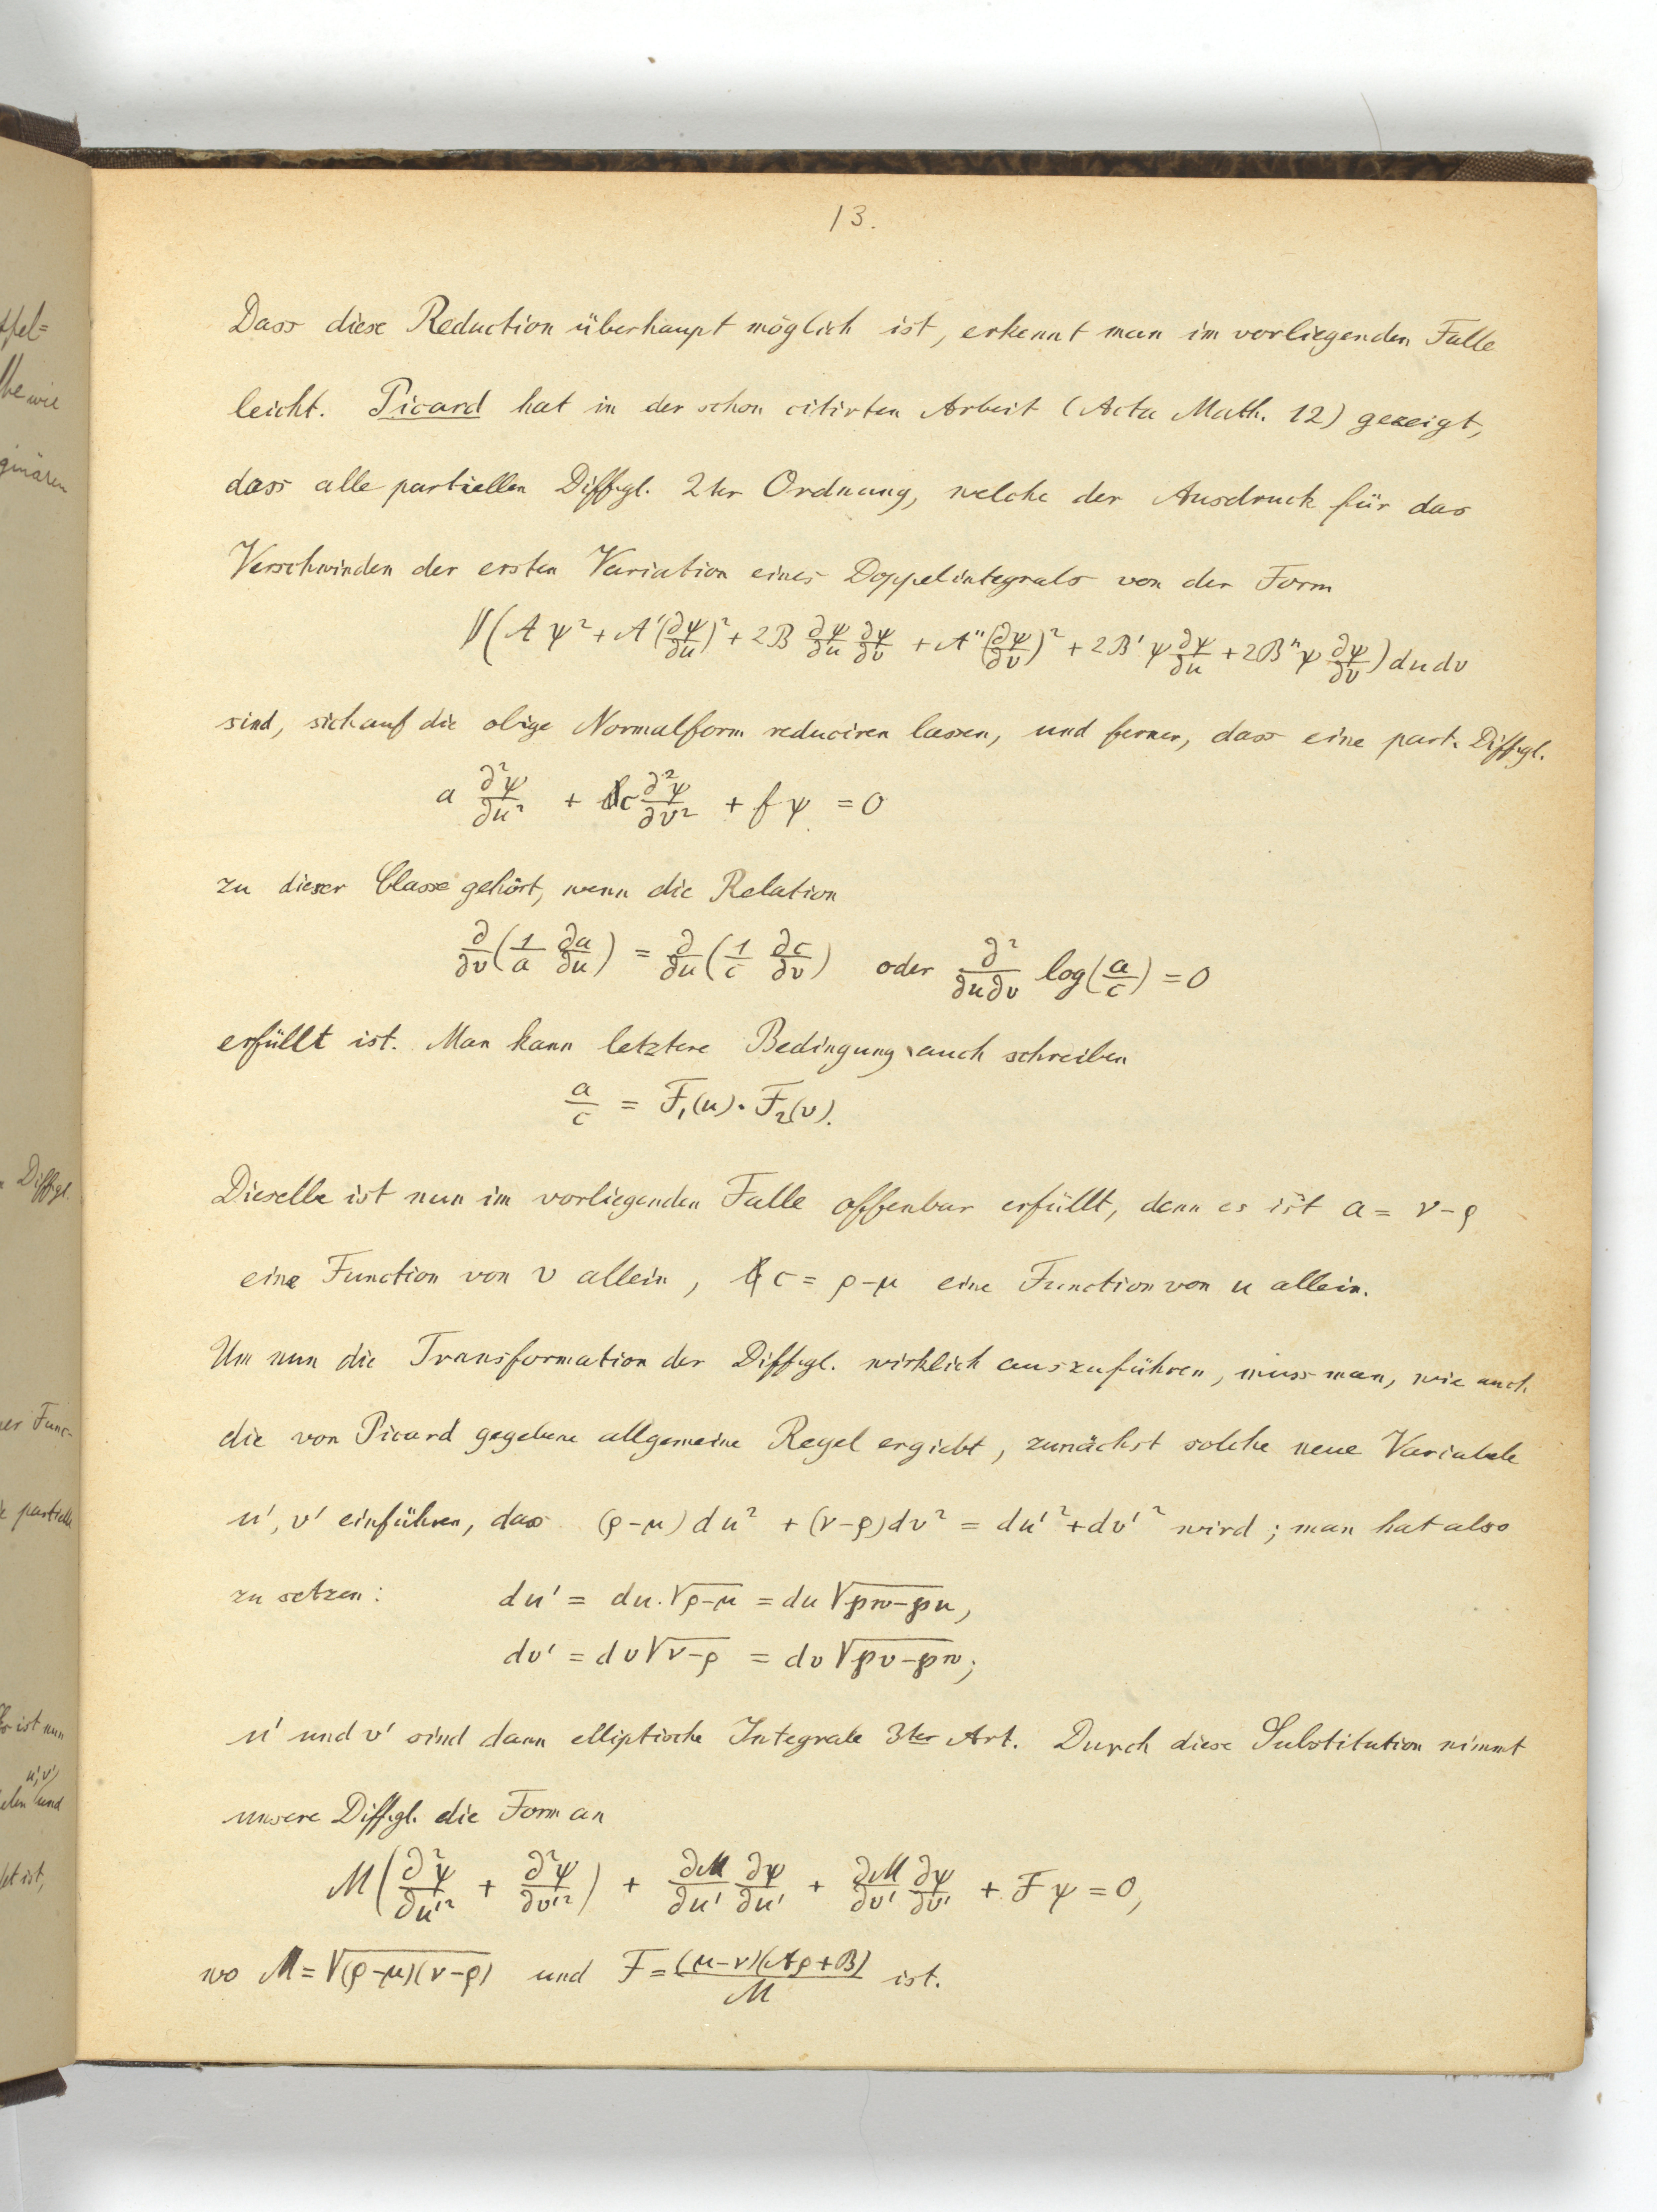 13.
Dass diese Reduction überhaupt möglich ist, erkennt man im vorliegenden Falle
leicht. Picard hat in der schon citirten Arbeit (Acta Math. 12) gezeigt,
dass alle partiellen Diffgl. 2ter Ordnung, welche der Ausdruck für das
Verschwinden der ersten Variation eines Doppelintegrals von der Form
∬(A ψ² + A'(∂ψ/∂u)² + 2B ∂ψ/∂u ∂ψ/∂v + A''(∂ψ/∂v)² + 2B' ψ ∂ψ/∂u + 2B'' ψ ∂ψ/∂v) du dv
sind, sich auf die obige Normalform reduciren lassen, und ferner, dass eine part. Diffgl.
a ∂²ψ/∂u² + c ∂²ψ/∂v² + f ψ = 0
zu dieser Classe gehört, wenn die Relation
∂/∂v (1/a ∂a/∂u) = ∂/∂u (1/c ∂c/∂v) oder ∂²/∂u∂v log(a/c) = 0
erfüllt ist. Man kann letztere Bedingung auch schreiben
a/c = F₁(u) · F₂(v).
Dieselbe ist nun im vorliegenden Falle offenbar erfüllt, denn es ist a = ν-ρ
eine Function von v allein, c = ρ-μ eine Function von u allein.
Um nun die Transformation der Diffgl. wirklich auszuführen, muss man, wie auch
die von Picard gegebene allgemeine Regel ergiebt, zunächst solche neue Variabele
u', v' einführen, das (ρ-μ) du² + (ν-ρ) dv² = du'² + dv'² wird; man hat also
zu setzen: du' = du · √(ρ-μ) = du √(℘w-℘u),
dv' = dv √(ν-ρ) = dv √(℘v-℘w);
u' und v' sind dann elliptische Integrale 3ter Art. Durch diese Substitution nimmt
unsere Diffgl. die Form an
M(∂²ψ/∂u'² + ∂²ψ/∂v'²) + ∂M/∂u' ∂ψ/∂u' + ∂M/∂v' ∂ψ/∂v' + F ψ = 0,
wo M = √((ρ-μ)(ν-ρ)) und F = (μ-ν)(Aρ+B)/M ist.